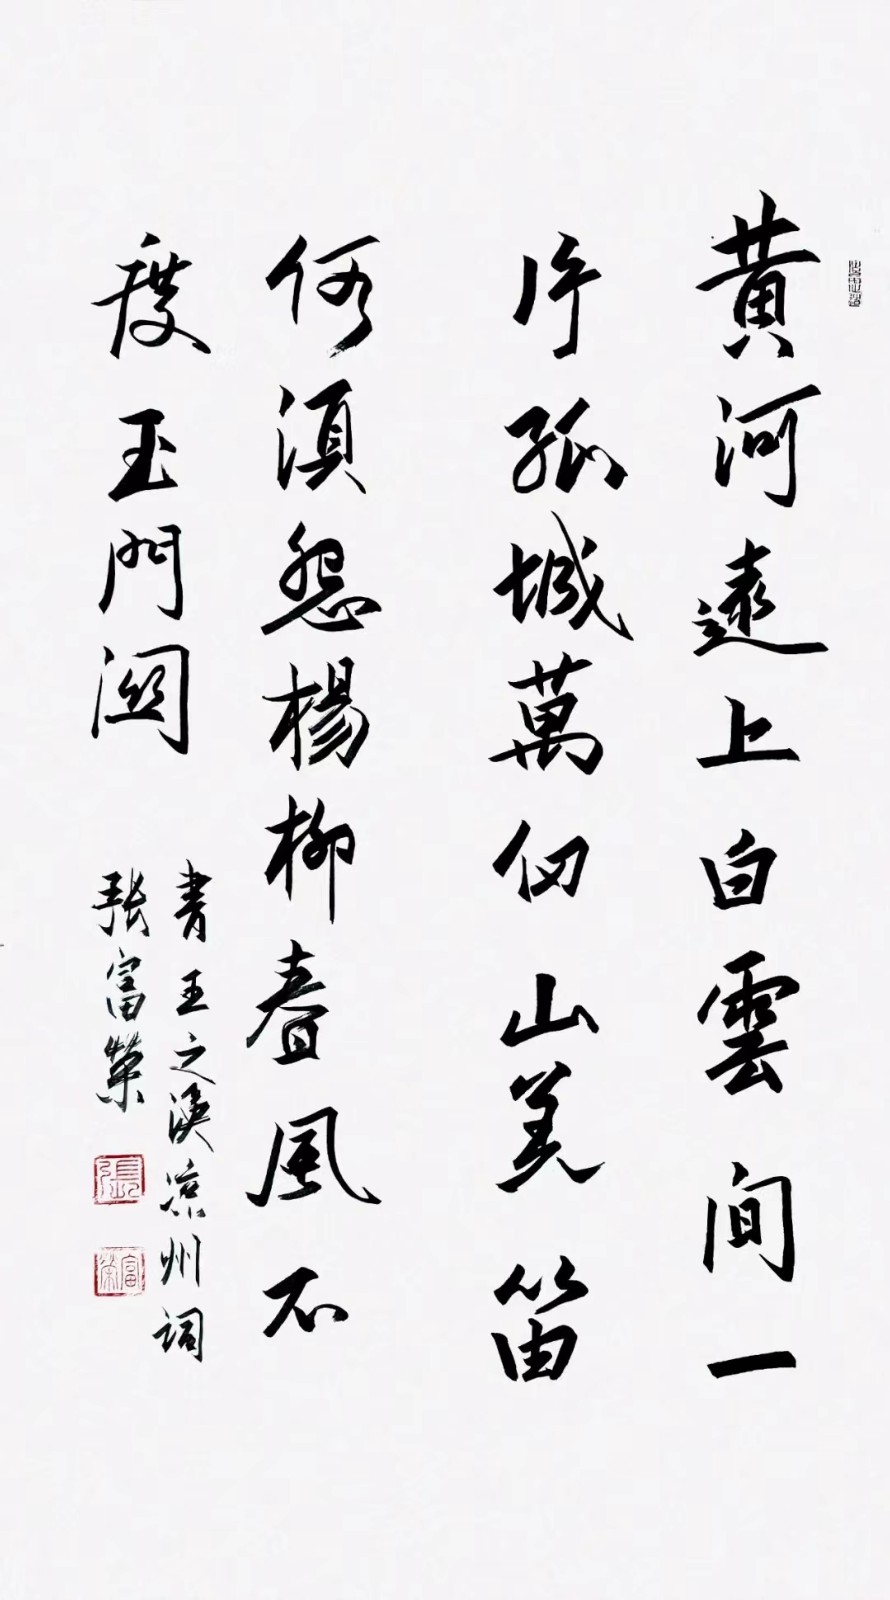 黄河遠上白雲间一
片孤城萬仞山羌笛
何須怨楊柳春風不
度玉門関
書王之渙凉州词
張富榮
張
富榮